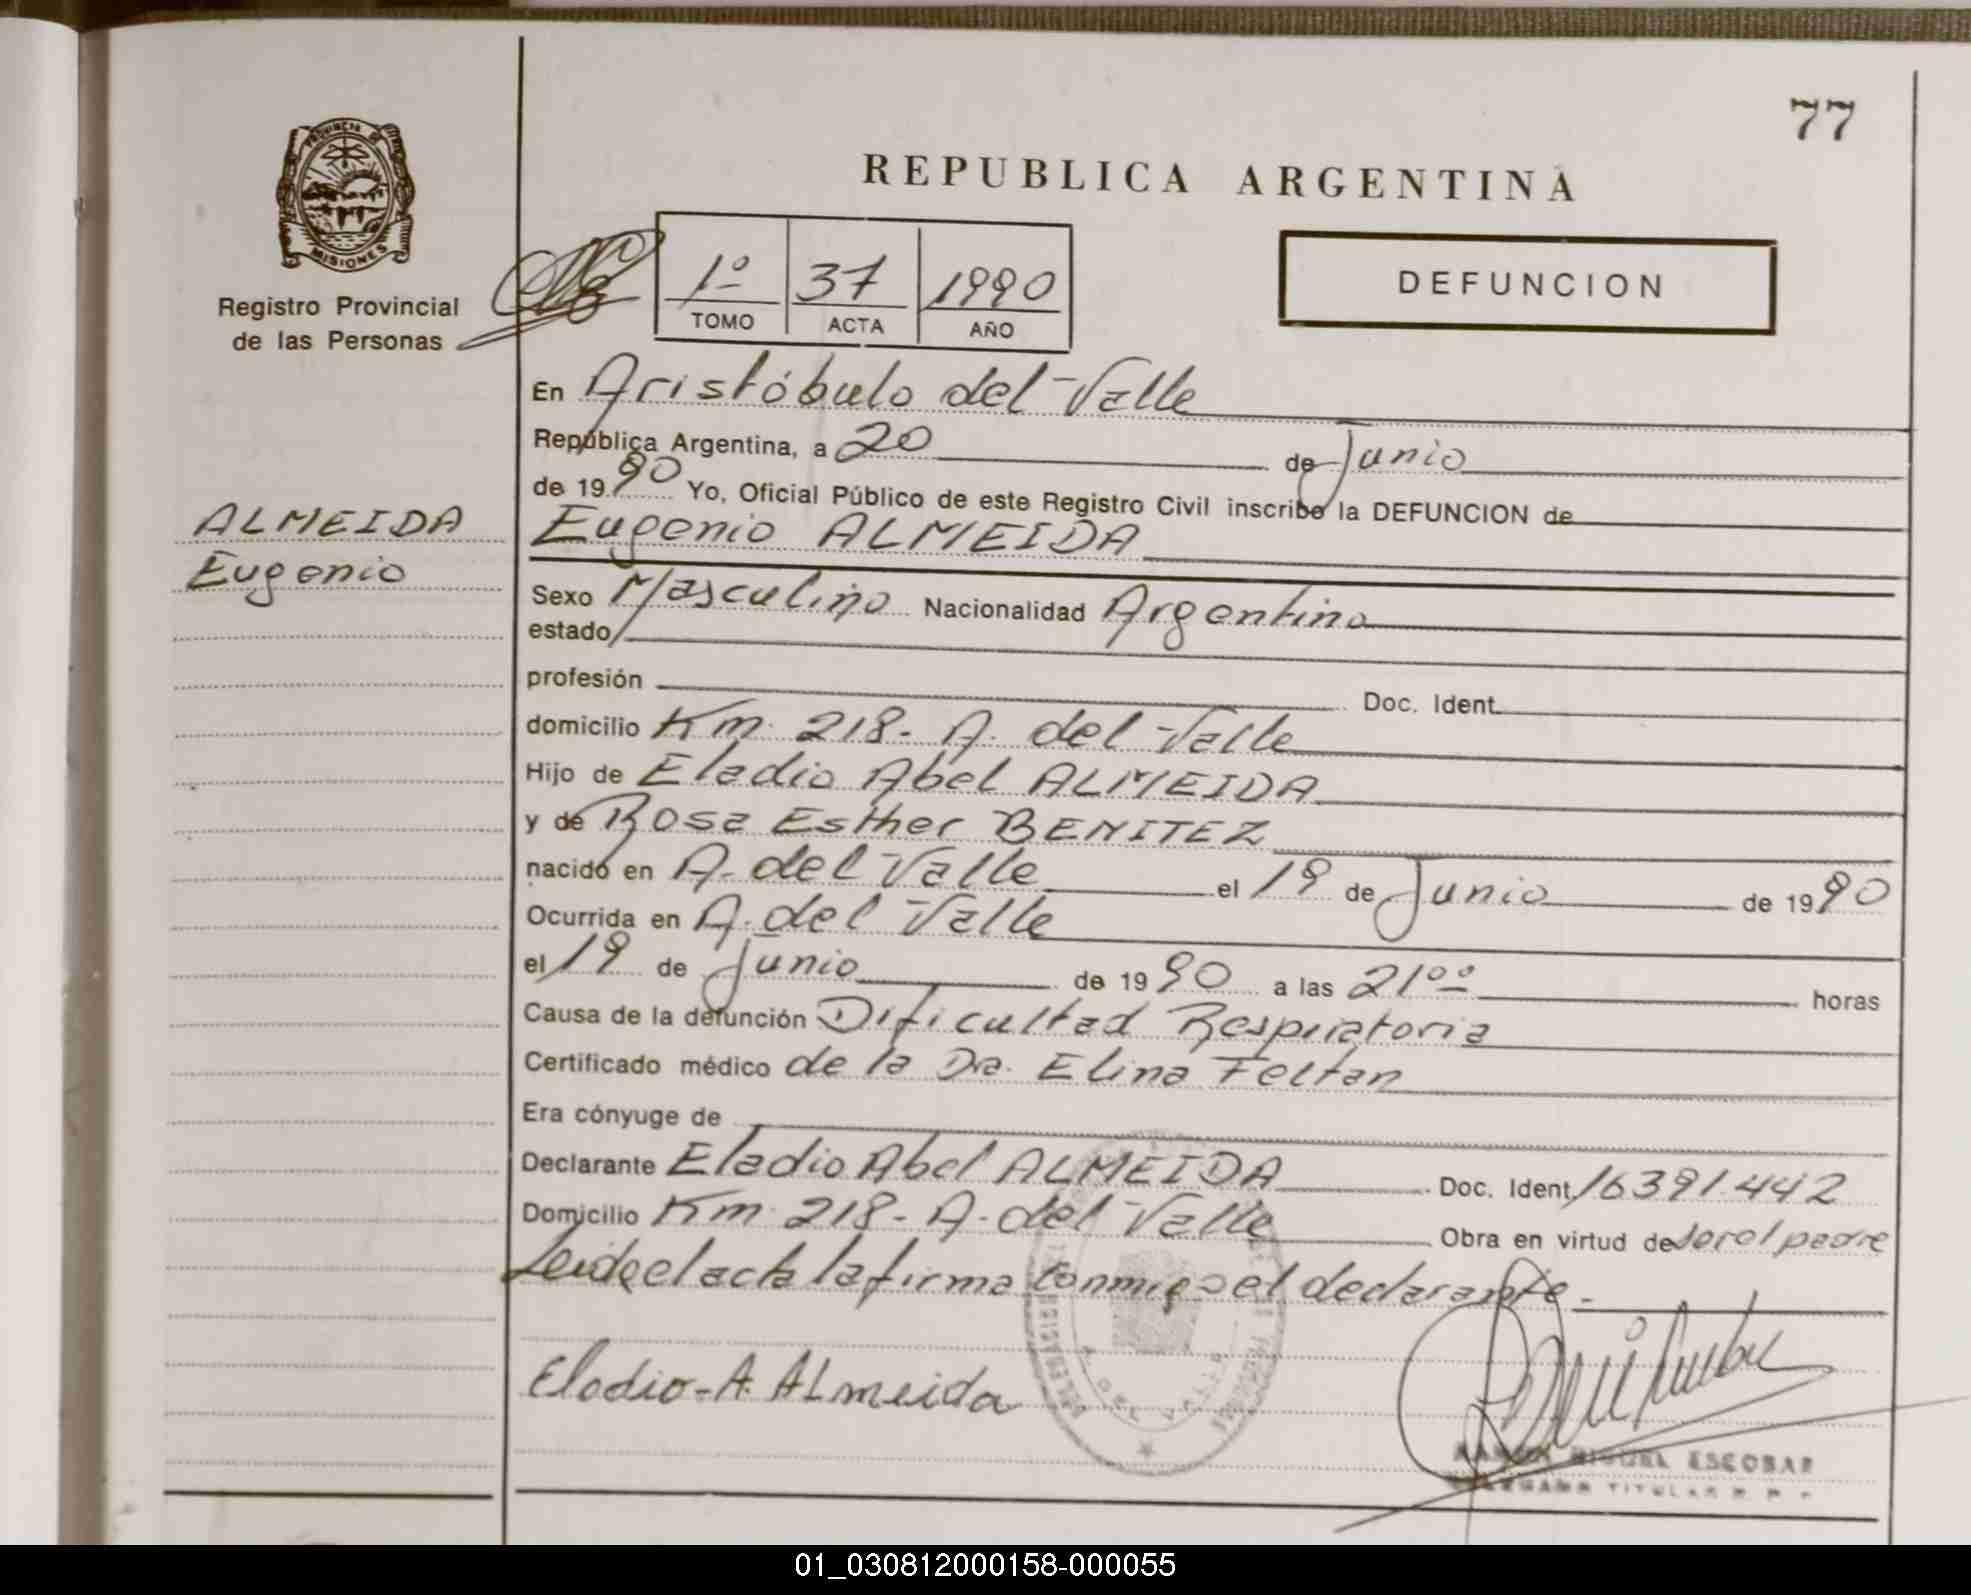 77
REPUBLICA ARGENTINA
PROVINCIA DE
MISIONES
Registro Provincial
de las Personas
1º 37 1990
TOMO ACTA AÑO
DEFUNCION
ALMEIDA
Eugenio
En Aristóbulo del Valle
República Argentina, a 20 de Junio
de 1990 Yo, Oficial Público de este Registro Civil inscribo la DEFUNCION de
Eugenio ALMEIDA
Sexo Masculino Nacionalidad Argentina
estado
profesión Doc. Ident.
domicilio Km. 218- A. del Valle
Hijo de Eladio Abel ALMEIDA
y de Rosa Esther BENITEZ
nacido en A. del Valle el 19 de Junio de 1990
Ocurrida en A. del Valle
el 19 de Junio de 1990 a las 21ºº horas
Causa de la defunción Dificultad Respiratoria
Certificado médico de la Dra. Elina Feltan
Era cónyuge de
Declarante Eladio Abel ALMEIDA Doc. Ident. 16391.442
Domicilio Km. 218- A. del Valle Obra en virtud de ser el padre
Leida el acta la firma conmigo el declarante.-
Eladio-A. ALmeida
A. DEL VALLE
MIGUEL ESCOBAR
TITULAR
01_030812000158-000055